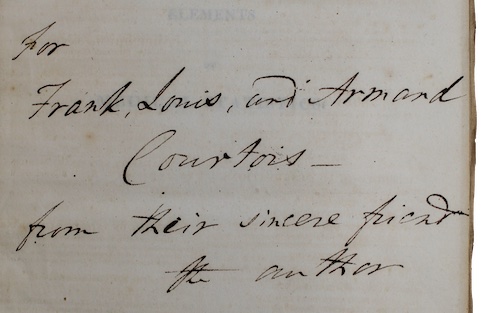 ELEMENTS
For
Frank, Louis, and Armand
Courtois —
from their sincere friend
the author